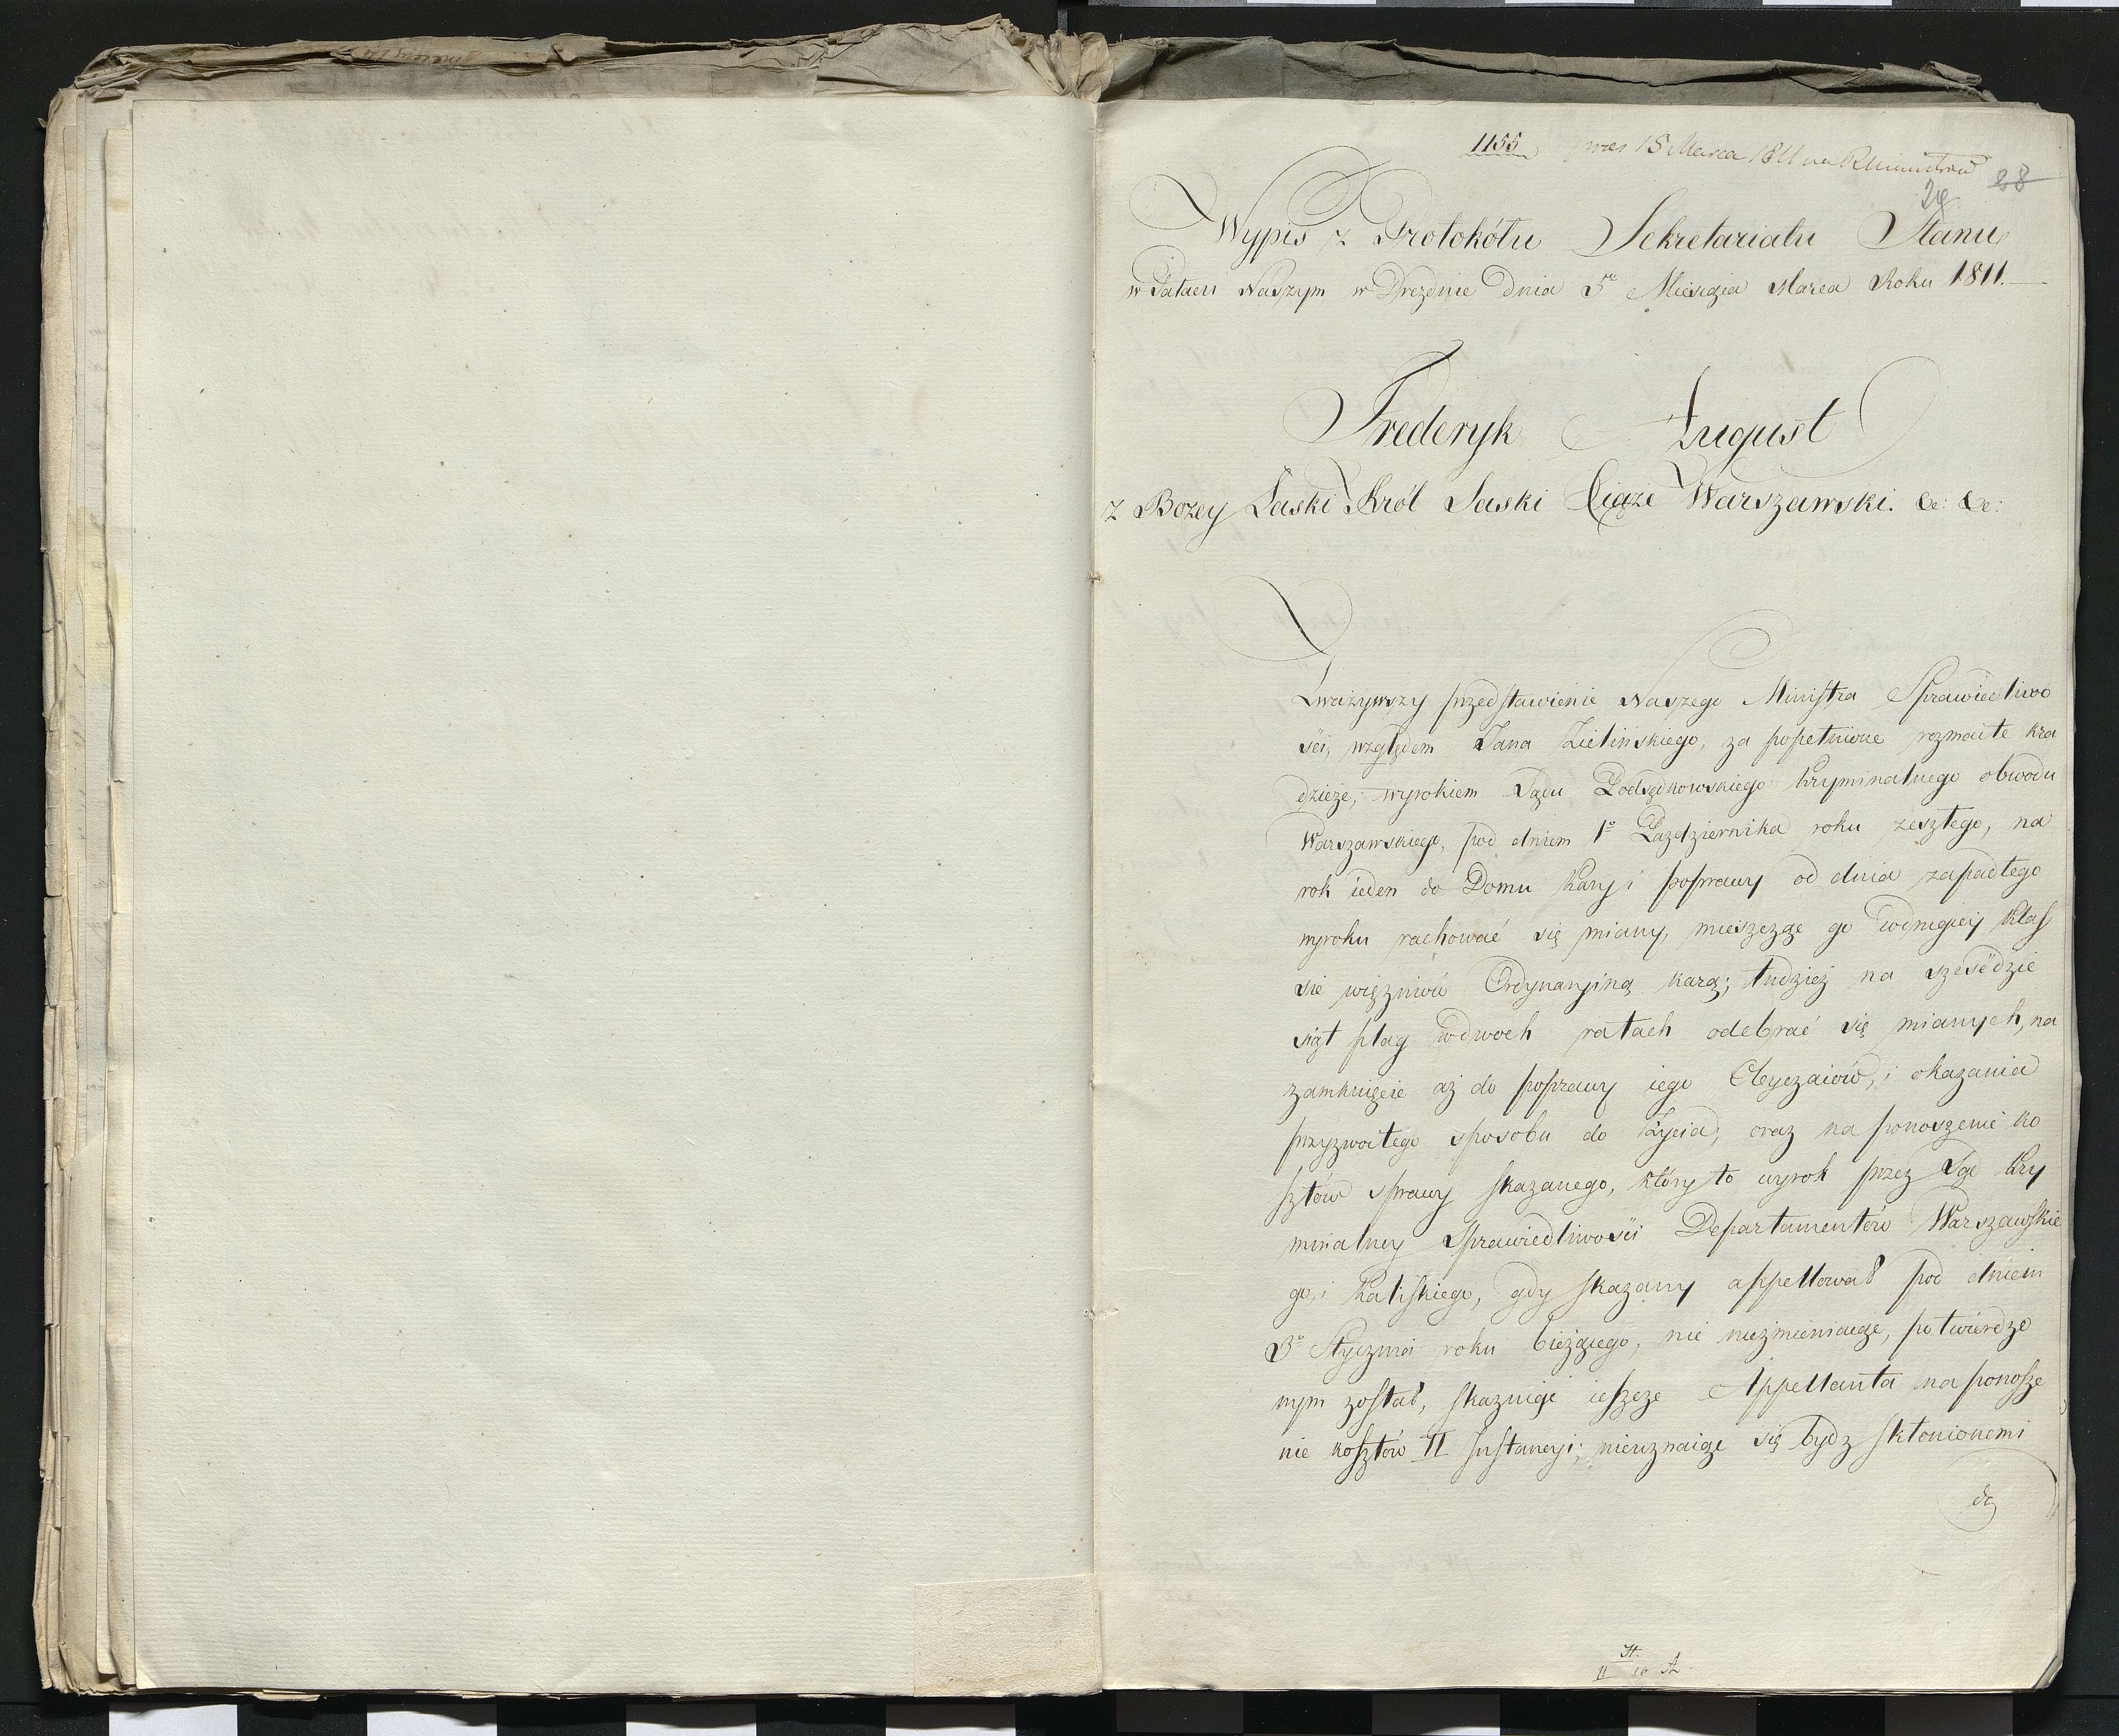 1155 pres 15 Marca 1811 na R Ministrów
29 28
Wypis z Protokółu Sekretariatu Stanu
w Pałacu Naszym w Dreźnie Dnia 5º Miesiąca Marca Roku 1811.
Frederyk August
z Bożey Łaski Król Saski Xiąże Warszawski. &c: &c:
Zważywszy przedstawienie Naszego Ministra Sprawiedliwo
ści, względem Jana Zielińskiego, za popełnione rozmaite kra
dzieże, wyrokiem Sądu Podsędkowskiego kryminalnego obwodu
Warszawskiego, pod dniem 1º Października roku zeszłego, na
rok ieden do Domu kary i poprawy od dnia zapadłego
wyroku rachować się miany, mieszcząc go w drugiey klas
sie więzniów Ordynaryiną karą; tudzież na sześćdzie
siąt plag w dwoch ratach odebrać się mianych, na
zamknięcie aż do poprawy iego Obyczaiów, i okazania
przyzwoitego sposobu do życia, oraz na ponoszenie ko
sztów sprawy skazanego, który to wyrok przez Sąd kry
minalney Sprawiedliwości Departamentów Warszawskie
go, i Kaliskiego, gdy skazany appellował pod dniem
3º Stycznia roku bieżącego, nic niezmieniaiąc, potwierdzo
nym został, skazuiąc ieszcze Appellanta na ponosze
nie kosztów II Instancyi; nieuznaiąc się bydz skłonionemi
do